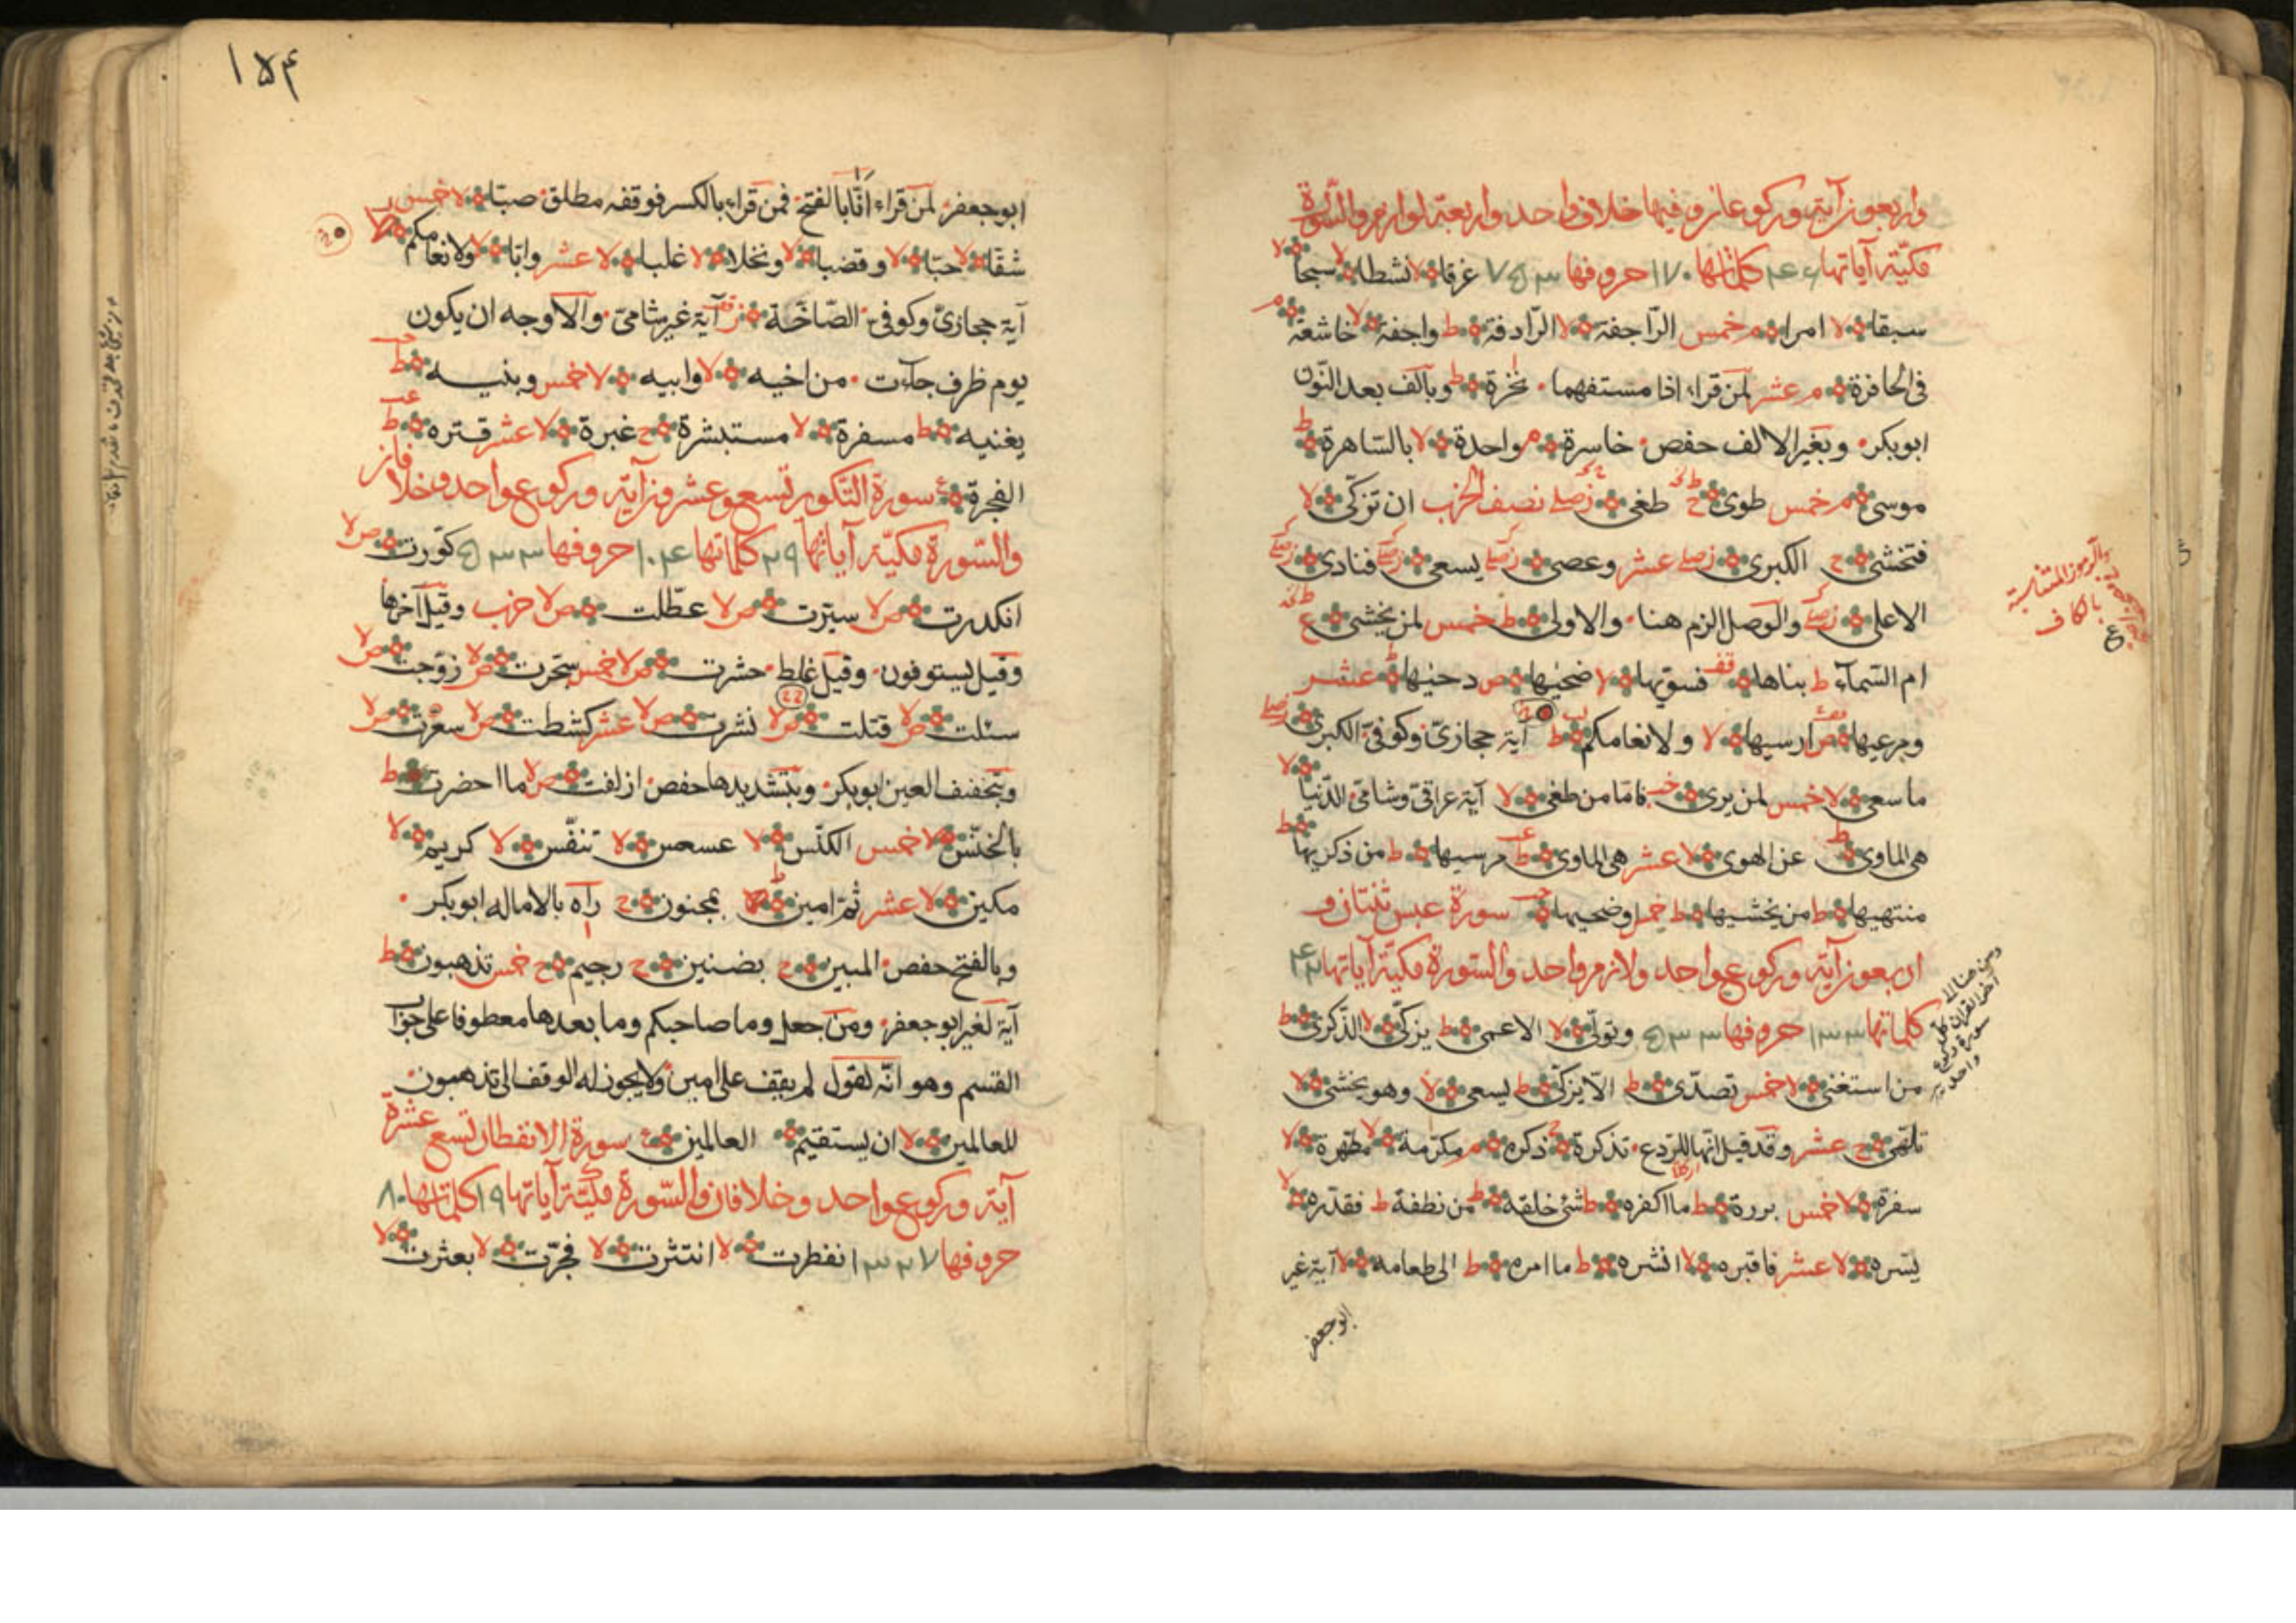 واربعون آية وركوعان وفيها خلاف واحد واربعة لوازم والسّورة
مكيّة آياتها ۴۶ كلماتها ۱۷۰ حروفها ۷۵۳ غرقا لا نشطا لا سبحا لا
سبقا لا امرا م خمس الرّاجفة لا الرّادفة ط واجفة لا خاشعة م
فى الحافرة م عشر لمن قراء اذا مستفهما نخرة ط وبالف بعد النّون
ابوبكر وبغير الالف حفص خاسرة م واحدة لا بالسّاهرة ط
موسى م خمس طوى ح طغى نصف الحزب ان تزكّى لا
فتخشى ح الكبرى عشر وعصى يسعى فنادى
الاعلى والوصل الزم هنا والاولى ط خمس لمن يخشى ع
ام السّمآء ط بناها قف فسوّيها لا ضحيها ص دحيها عشر
ومرعيها ص ارسيها لا ولانعامكم ط آية حجازىّ وكوفىّ الكبرى
ما سعى لا خمس لمن يرى فامّا من طغى لا آية عراقىّ وشامىّ الدّنيا لا
هى الماوى ط عن الهوى لا عشر هى الماوى ط مرسيها ط من ذكريها ط
منتهيها ط من يخشيها ط خمس وضحيها سورة عبس ثنتان و
اربعون آية وركوع واحد ولازم واحد والسّورة مكيّة آياتها ۴۲
كلماتها ۱۳۳ حروفها ۵۳۳ وتولّى لا الاعمى ط يزكّى لا الذّكرى ط
من استغنى لا خمس تصدّى ط الّا يزكّى ط يسعى لا وهو يخشى لا
تلهّى ح عشر وقد قيل انّها للرّدع تذكرة ح ذكره م مكرّمة لا مطهّرة لا
سفرة لا خمس بررة ط ما اكفره ط شئ خلقه ط من نطفة ط فقدّره لا
يسّره لا عشر فاقبره لا انشره ط ما امره ط الى طعامه لا آية غير
ابوجعفر
والرموز المتشابهة
بالكاف
ومن هنا الى
آخر القرآن كل
سورة ركوع
واحد
۱۵۴
ابوجعفر لمن قراء انّا بالفتح فمن قراء بالكسر فوقفه مطلق صبّا لا خمس
شقّا لا حبّا لا وقضبا لا ونخلا لا غلبا لا عشر وابّا لا ولانعامكم ط
آية حجازىّ وكوفىّ الصّاخّة آية غير شامىّ والاوجه ان يكون
يوم ظرف جآءت من اخيه لا وابيه لا خمس وبنيه ط
يغنيه ط مسفرة لا مستبشرة ح غبرة لا عشر قترة ط
الفجرة ع سورة التّكوير تسع وعشرون آية وركوع واحد وخلافان
والسّورة مكيّة آياتها ۲۹ كلماتها ۱۰۴ حروفها ۵۳۳ كوّرت ص لا
انكدرت ص لا سيّرت ص لا عطّلت ص لا حزب وقيل آخرها
وقيل يستوفون وقيل غلط حشرت ص لا خمس سجّرت ص لا زوّجت ص لا
سئلت ص لا قتلت ص لا نشرت ص لا عشر كشطت ص لا سعّرت ص لا
وبتخفيف العين ابوبكر وبتشديدها حفص ازلفت ص لا ما احضرت ط
بالخنّس لا خمس الكنّس لا عسعس لا تنفّس لا كريم لا
مكين لا عشر ثمّ امين ط بمجنون ح رآه بالاماله ابوبكر
وبالفتح حفص المبين ح بضنين ح رجيم ح خمس تذهبون ط
آية لغير ابوجعفر ومن جعل وما صاحبكم وما بعدها معطوفا على جواب
القسم وهو انّه لقول لم يقف على امين ولا يجوز له الوقف الى تذهبون
للعالمين لا ان يستقيم العالمين ع سورة الانفطار تسع عشرة
آية وركوع واحد وخلافان والسّورة مكيّة آياتها ۱۹ كلماتها ۸۰
حروفها ۳۲۷ انفطرت لا انتثرت لا فجّرت لا بعثرت لا